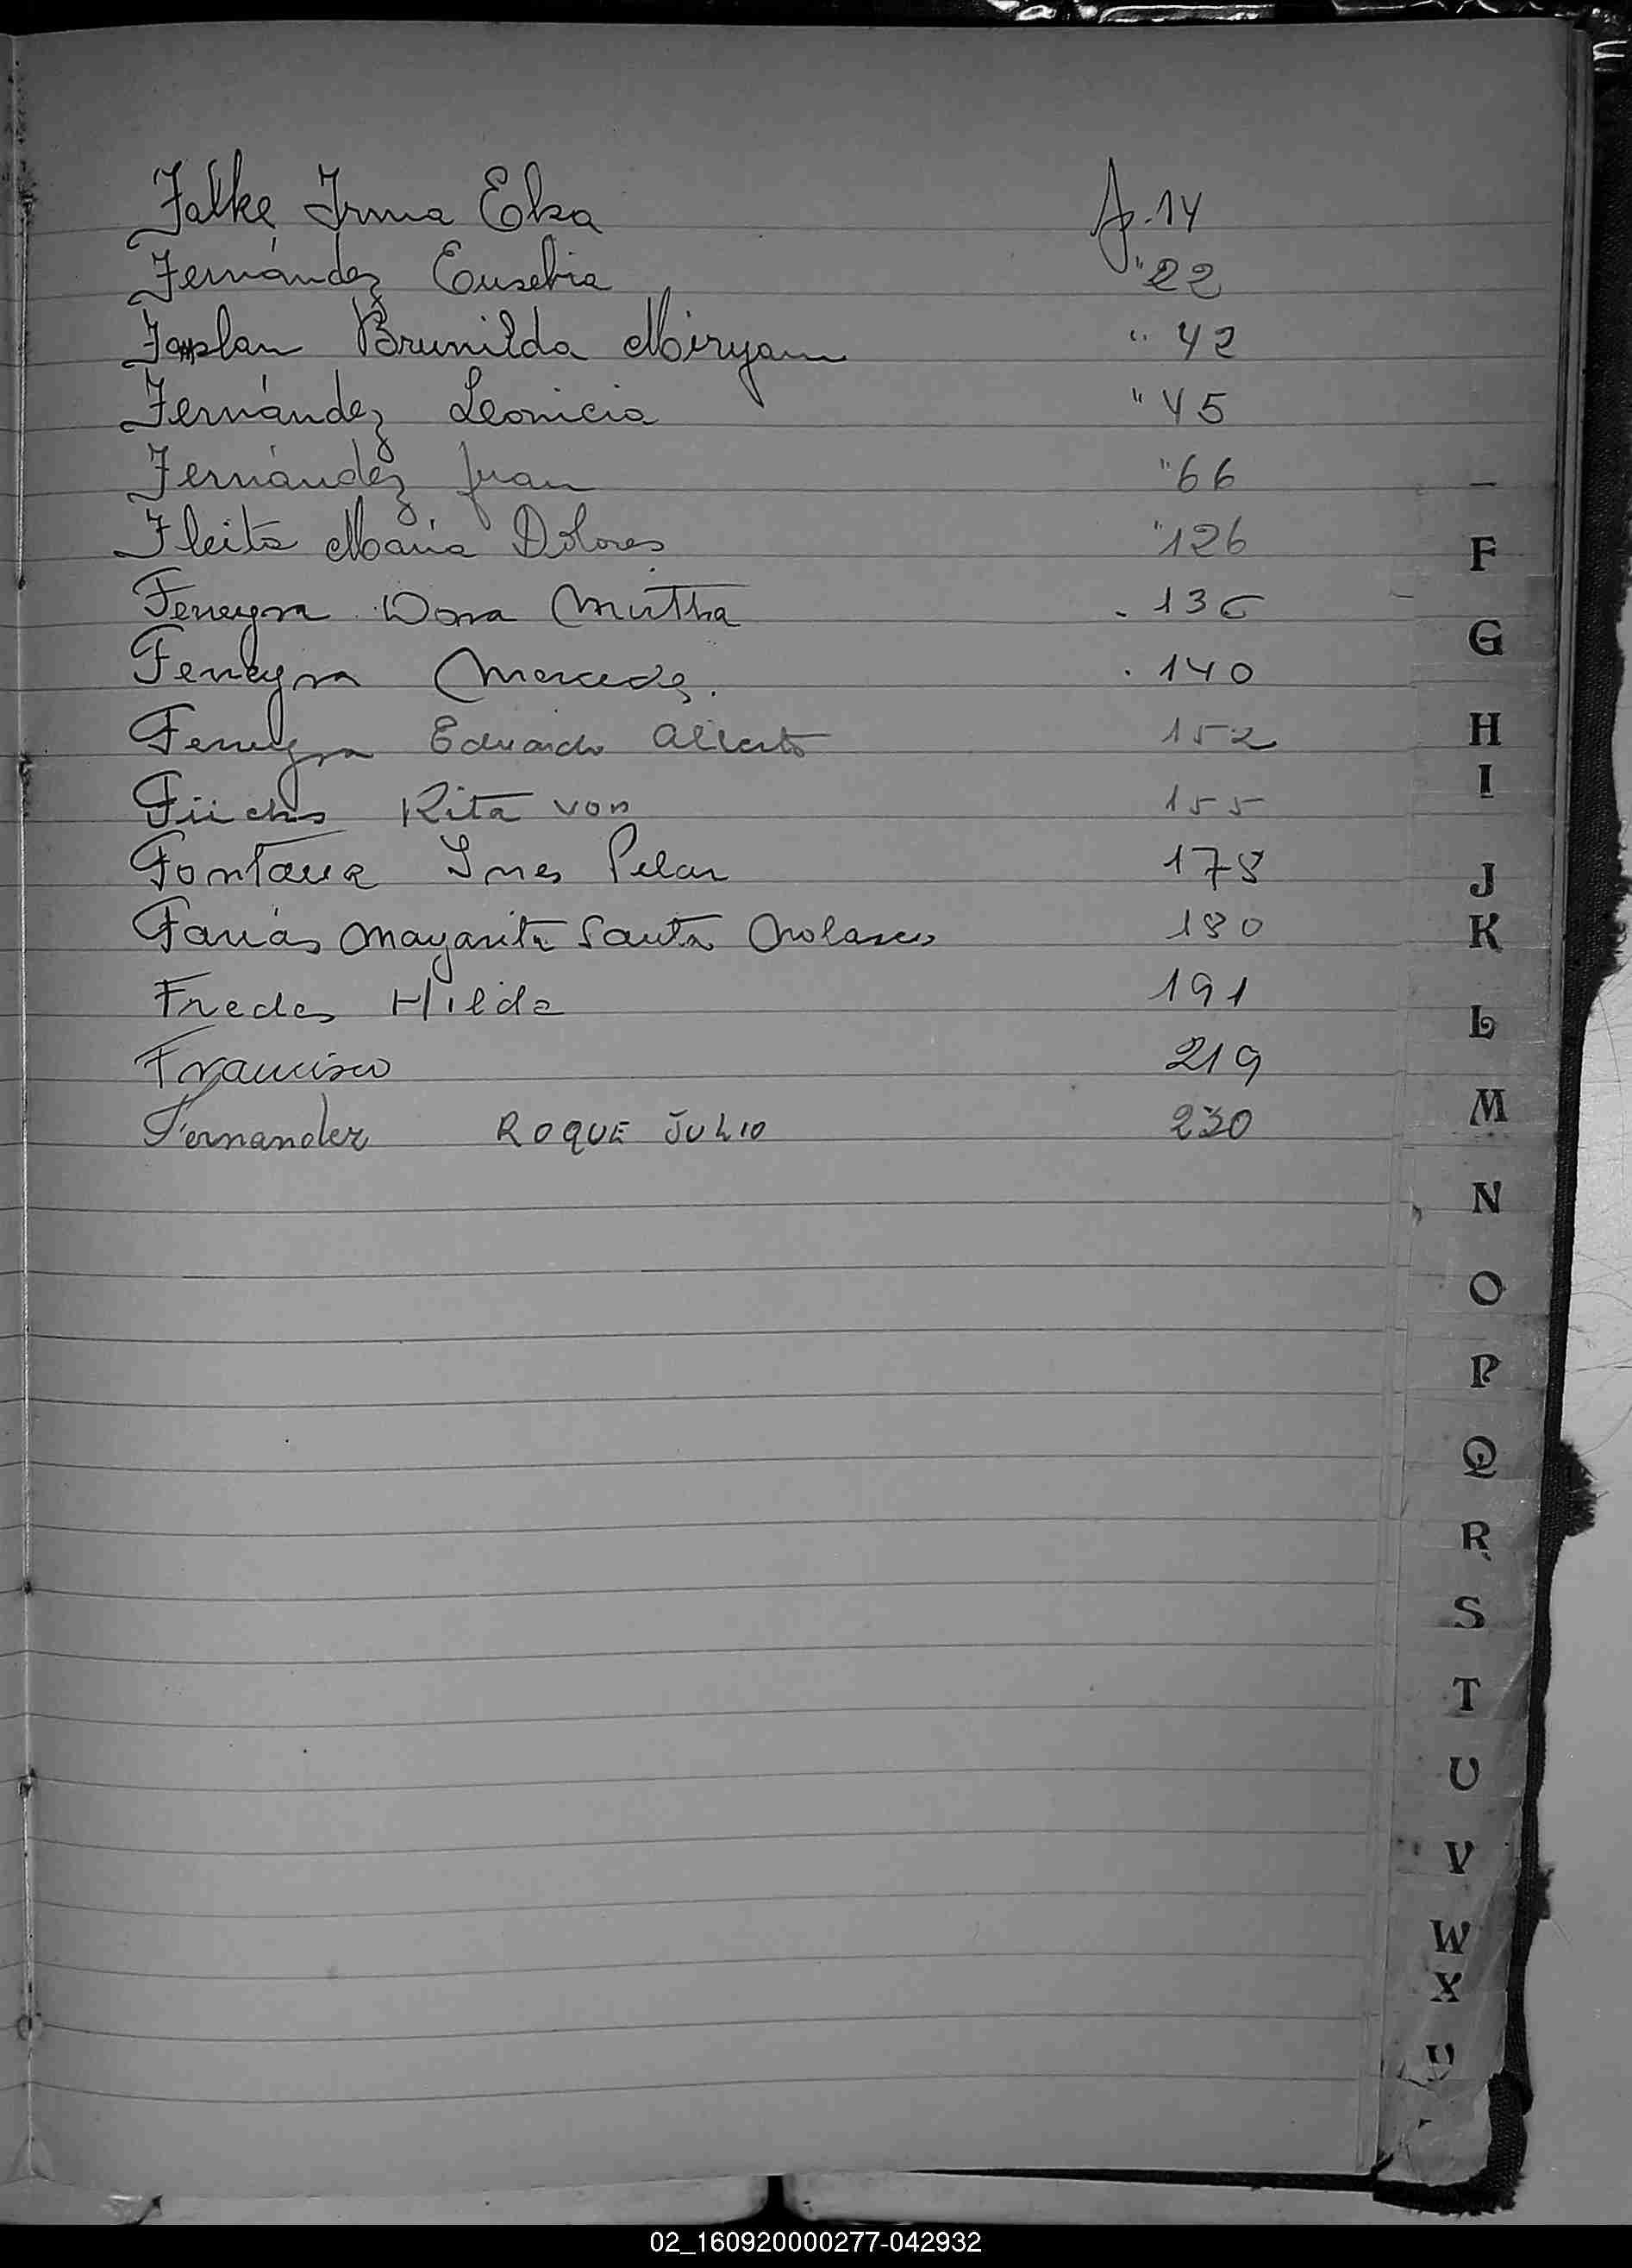 Falke Irma Elsa f. 14
Fernández Eusebia " 22
Brunilda Miryam " 42
Fernández Leonicia " 45
Fernández Juan " 66
Fleita María Dolores " 126
Ferreyra Dora Mirtha 136
Ferreyra Mercedes. 140
Ferreyra Eduardo Alberto 152
Füchs Rita von 155
Fontana Ines Pilar 178
Farías Margarita Santa Nolasco 180
Fredes Hilda 191
Francisco 219
Fernandez ROQUE JULIO 230
F
G
H
I
J
K
L
M
N
O
P
Q
R
S
T
U
V
W
X
02_160920000277-042932